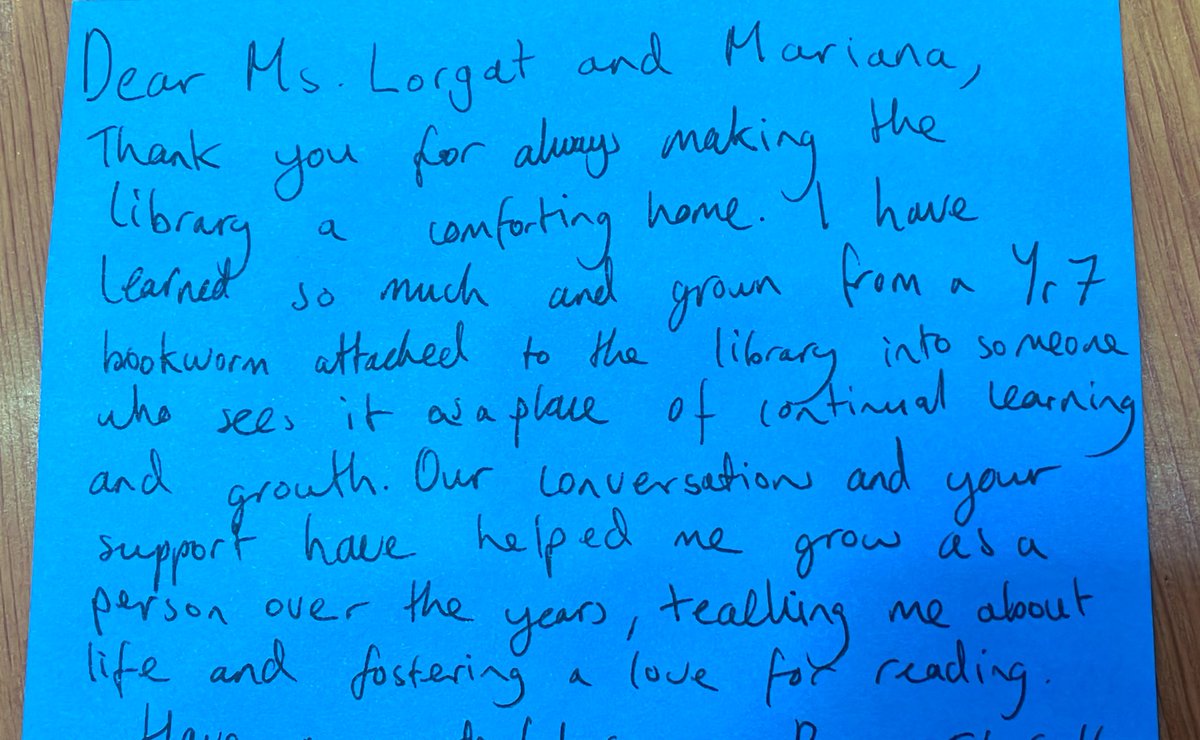 Dear Ms. Lorgat and Mariana,
Thank you for always making the
library a comforting home. I have
learned so much and grown from a Yr 7
bookworm attached to the library into someone
who sees it as a place of continual learning
and growth. Our conversations and your
support have helped me grow as a
person over the years, teaching me about
life and fostering a love for reading.
Have